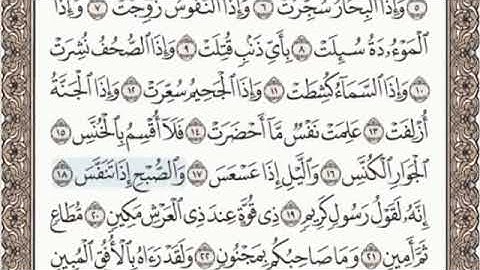 ٥ وَإِذَا ٱلْبِحَارُ سُجِّرَتْ ٦ وَإِذَا ٱلنُّفُوسُ زُوِّجَتْ ٧ وَإِذَا
ٱلْمَوْءُۥدَةُ سُئِلَتْ ٨ بِأَىِّ ذَنۢبٍ قُتِلَتْ ٩ وَإِذَا ٱلصُّحُفُ نُشِرَتْ
١٠ وَإِذَا ٱلسَّمَآءُ كُشِطَتْ ١١ وَإِذَا ٱلْجَحِيمُ سُعِّرَتْ ١٢ وَإِذَا ٱلْجَنَّةُ
أُزْلِفَتْ ١٣ عَلِمَتْ نَفْسٌ مَّآ أَحْضَرَتْ ١٤ فَلَآ أُقْسِمُ بِٱلْخُنَّسِ ١٥
ٱلْجَوَارِ ٱلْكُنَّسِ ١٦ وَٱلَّيْلِ إِذَا عَسْعَسَ ١٧ وَٱلصُّبْحِ إِذَا تَنَفَّسَ ١٨
إِنَّهُۥ لَقَوْلُ رَسُولٍ كَرِيمٍ ١٩ ذِى قُوَّةٍ عِندَ ذِى ٱلْعَرْشِ مَكِينٍ ٢٠ مُّطَاعٍ
ثَمَّ أَمِينٍ ٢١ وَمَا صَاحِبُكُم بِمَجْنُونٍ ٢٢ وَلَقَدْ رَءَاهُ بِٱلْأُفُقِ ٱلْمُبِينِ